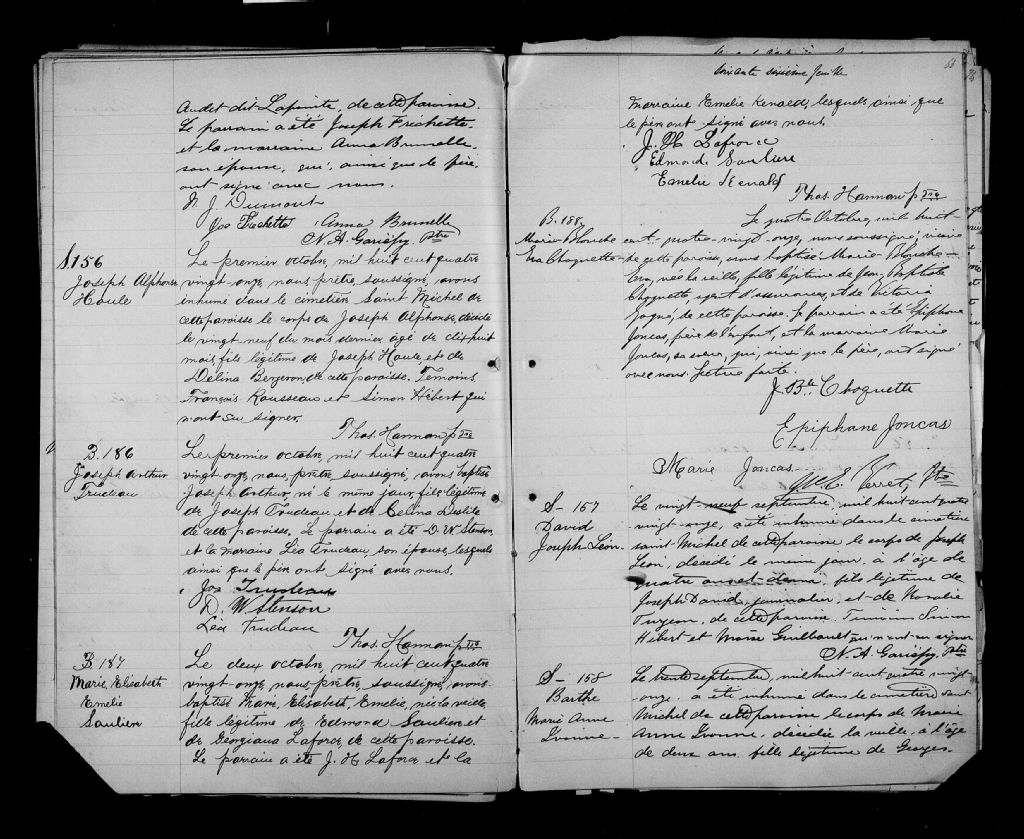 Audet dit Lapointe, de cette paroisse.
Le parrain a été Joseph Fréchette
et la marraine Anna Brunelle
son épouse, qui, ainsi que le père,
ont signé avec nous.
N. J. Dumont
Jos Frechette Anna Brunelle
N. A. Gariépy Ptre
S. 156
Joseph Alphonse
Houle
Le premier octobre, mil huit cent quatre
vingt-onze, nous prêtre, soussigné, avons
inhumé dans le cimetière Saint Michel de
cette paroisse le corps de Joseph Alphonse, décédé
le vingt neuf du mois dernier, âgé de dixhuit
mois, fils légitime de Joseph Houle, et de
Délina Bergeron, de cette paroisse. Témoins,
François Rousseau et Simon Hébert qui
n'ont su signer.
Thos. Hannon ptre
B. 186
Joseph Arthur
Trudeau
Le premier octobre, mil huit cent quatre
vingt-onze, nous, prêtre, soussigné, avons baptisé
Joseph Arthur, né le même jour, fils légitime
de Joseph Trudeau et de Celina
de cette paroisse. Le parrain a été D. W Stenson
et la marraine Léa Trudeau, son épouse, lesquels
ainsi que le père ont signé avec nous.
Jos Trudeau
D. W Stenson
Léa Trudeau
Thos. Hannon ptre
B 187
Marie, Elisabeth
Emelie
Saulier
Le deux octobre, mil huit cent quatre
vingt-onze, nous, prêtre, soussigné, avons
baptisé Marie, Elisabeth, Emelie, née la veille
fille légitime de Edmond Saulier et
de Georgiana Laforce de cette paroisse.
Le parrain a été J. H Laforce et la
soixante sixième feuille
marraine Emelie Renald, lesquels ainsi que
le père ont signé avec nous.
J. H Laforce
Edmond Sauliere
Emelie Renald
Thos. Hannon ptre
B. 188,
Marie Blanche
Eva Choquette
Le quatre Octobre, mil huit-
cent-quatre-vingt-onze, nous soussigné, vicaire
de cette paroisse, avons baptisé Marie-Blanche-
Eva, née la veille, fille légitime de Jean-Baptiste
Choquette, agent d'assurances, et de Victoria
de cette paroisse. Le parrain a été Epiphane
Joncas, père de l'enfant, et la marraine Marie
Joncas, sa soeur, qui, ainsi que le père, ont signé
avec nous. Lecture faite.
J. Bte. Choquette
Epiphane Joncas
Marie Joncas
Verret, Ptre
S- 157
David
Joseph Léon.
Le vingt-neuf septembre, mil huit cent quatre
vingt-onze, a été inhumé dans le cimetière
saint-Michel de cette paroisse le corps de Joseph
Léon, décédé le même jour, à l'âge de
quatre ans et demi, fils légitime de
Joseph David, journalier, et de Rosalie
Turgeon, de cette paroisse. Témoins Simon
Hébert et Moïse Guilbault qui n'ont su signer
N. A. Gariépy, Ptre
S- 158
Barthe
Marie Anne
Yvonne-
Le trente septembre, mil huit cent quatre vingt-
onze, a été inhumé dans le cimetière saint
Michel de cette paroisse le corps de Marie
Anne Yvonne, décédée la veille, à l'âge
de deux ans, fille légitime de Georges-